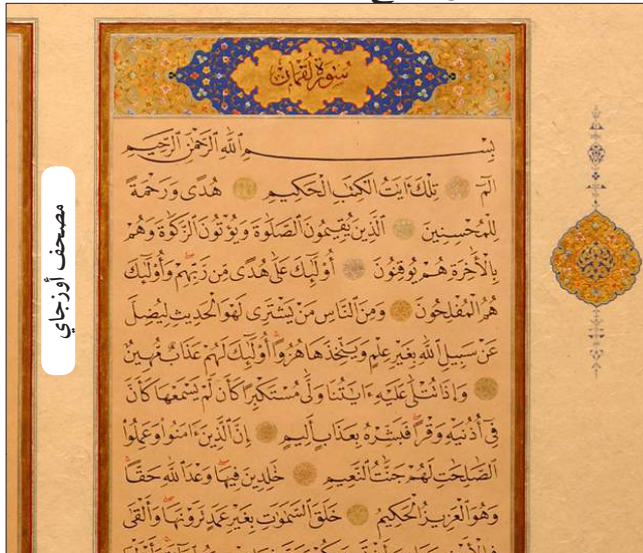 سُورَةُ لُقْمَان
بِسْمِ ٱللَّهِ ٱلرَّحْمَٰنِ ٱلرَّحِيمِ
الٓمٓ تِلْكَ ءَايَٰتُ ٱلْكِتَٰبِ ٱلْحَكِيمِ هُدًى وَرَحْمَةً
لِلْمُحْسِنِينَ ٱلَّذِينَ يُقِيمُونَ ٱلصَّلَوٰةَ وَيُؤْتُونَ ٱلزَّكَوٰةَ وَهُمْ
بِٱلْأَخِرَةِ هُمْ يُوقِنُونَ أُولَٰٓئِكَ عَلَىٰ هُدًى مِن رَبِّهِمْ وَأُولَٰٓئِكَ
هُمُ ٱلْمُفْلِحُونَ وَمِنَ ٱلنَّاسِ مَن يَشْتَرِى لَهْوَ ٱلْحَدِيثِ لِيُضِلَّ
عَن سَبِيلِ ٱللَّهِ بِغَيْرِ عِلْمٍ وَيَتَّخِذَهَا هُزُوًا أُولَٰٓئِكَ لَهُمْ عَذَابٌ مُهِينٌ
وَإِذَا تُتْلَىٰ عَلَيْهِ ءَايَٰتُنَا وَلَّىٰ مُسْتَكْبِرًا كَأَن لَمْ يَسْمَعْهَا كَأَنَّ
فِىٓ أُذُنَيْهِ وَقْرًا فَبَشِّرْهُ بِعَذَابٍ أَلِيمٍ إِنَّ ٱلَّذِينَ ءَامَنُوا وَعَمِلُوا
ٱلصَّٰلِحَٰتِ لَهُمْ جَنَّٰتُ ٱلنَّعِيمِ خَٰلِدِينَ فِيهَا وَعْدَ ٱللَّهِ حَقًّا
وَهُوَ ٱلْعَزِيزُ ٱلْحَكِيمُ خَلَقَ ٱلسَّمَٰوَٰتِ بِغَيْرِ عَمَدٍ تَرَوْنَهَا وَأَلْقَىٰ
مصحف أوزجاي